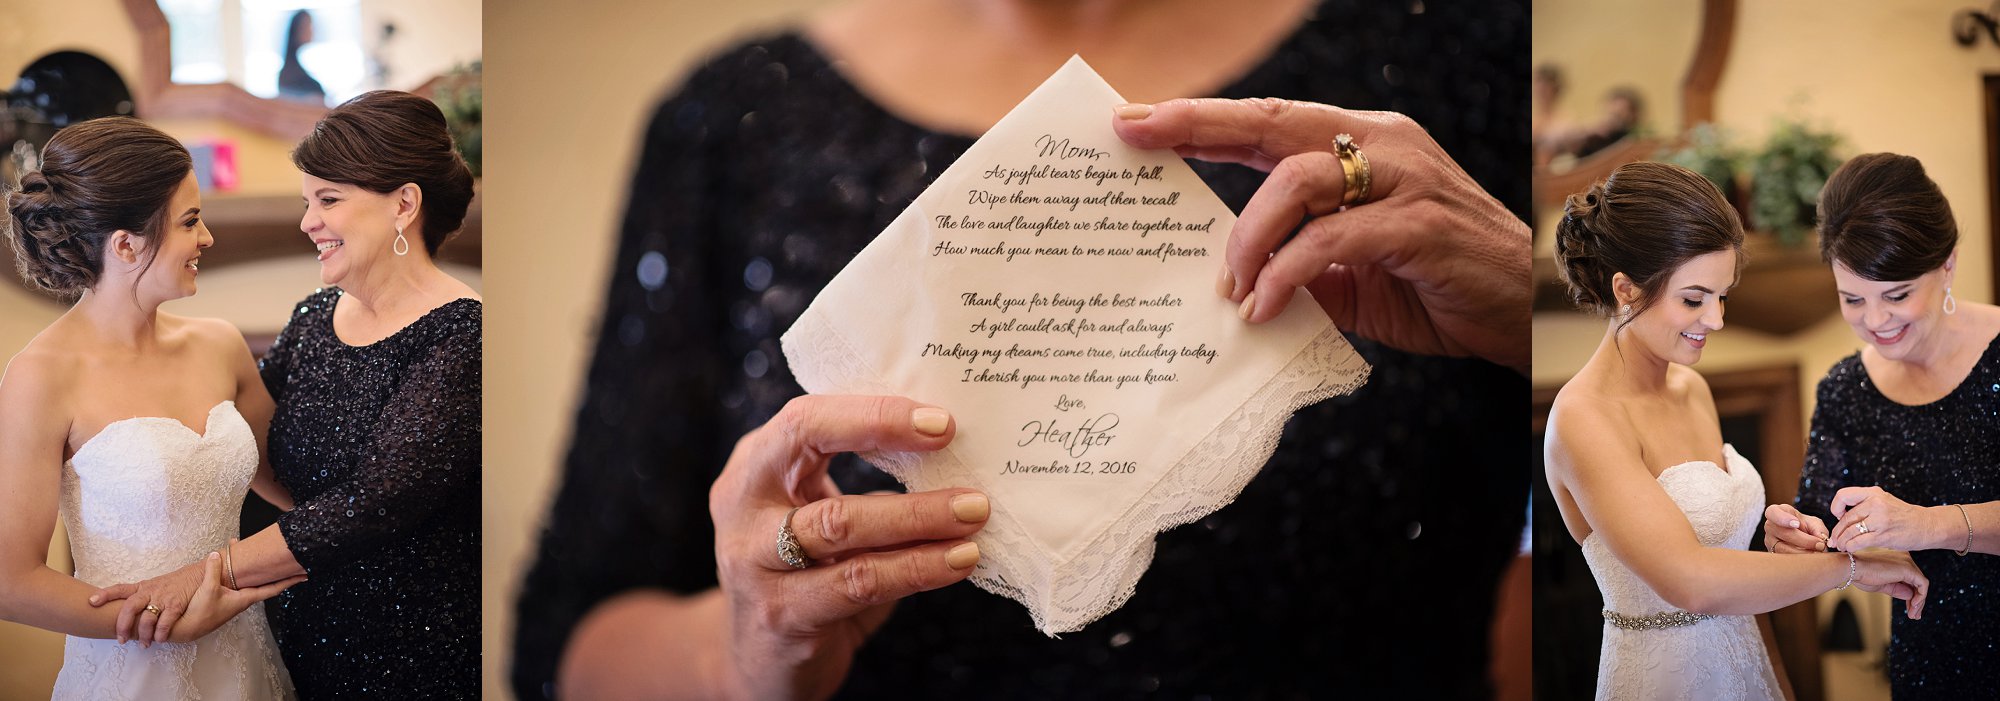 Mom,
As joyful tears begin to fall,
Wipe them away and then recall
The love and laughter we share together and
How much you mean to me now and forever.
Thank you for being the best mother
A girl could ask for and always
Making my dreams come true, including today.
I cherish you more than you know.
Love,
Heather
November 12, 2016